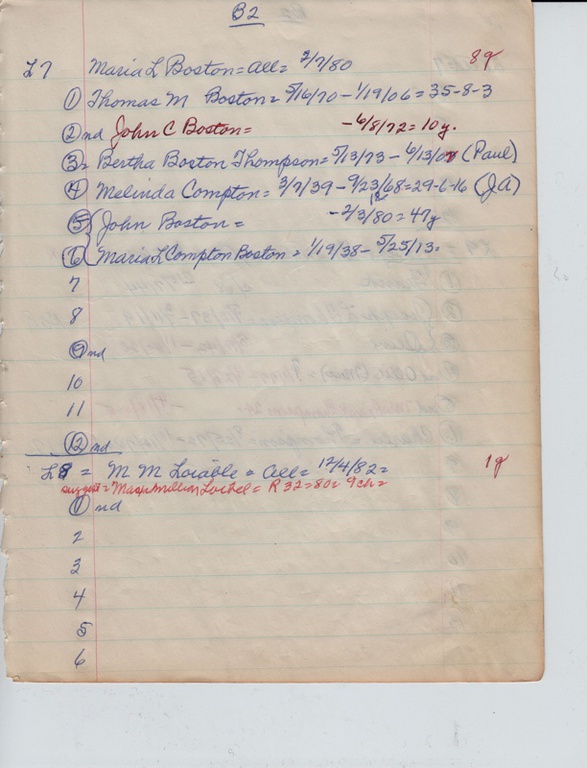 B2
L7 Maria L Boston = all = 2/7/80 8g
① Thomas M Boston = 5/16/70 - 1/19/06 = 35-8-3
② nd John C Boston = - 6/8/72 = 10y.
③ = Bertha Boston Thompson = 5/13/73 - 6/13/07 (Paul)
④ Melinda Compton = 3/7/39 - 9/23/68 = 29-6-16 (JA)
⑤ John Boston = - 2/3/80 = 47y
⑥ Maria L Compton Boston = 1/19/38 - 5/25/13 =
7
8
⑨ nd
10
11
⑫ nd
L8 = M M Loiable = all = 12/4/82 = 1g
suggest = Maximillian = R 32 = 80 = 9 ch =
① nd
2
3
4
5
6